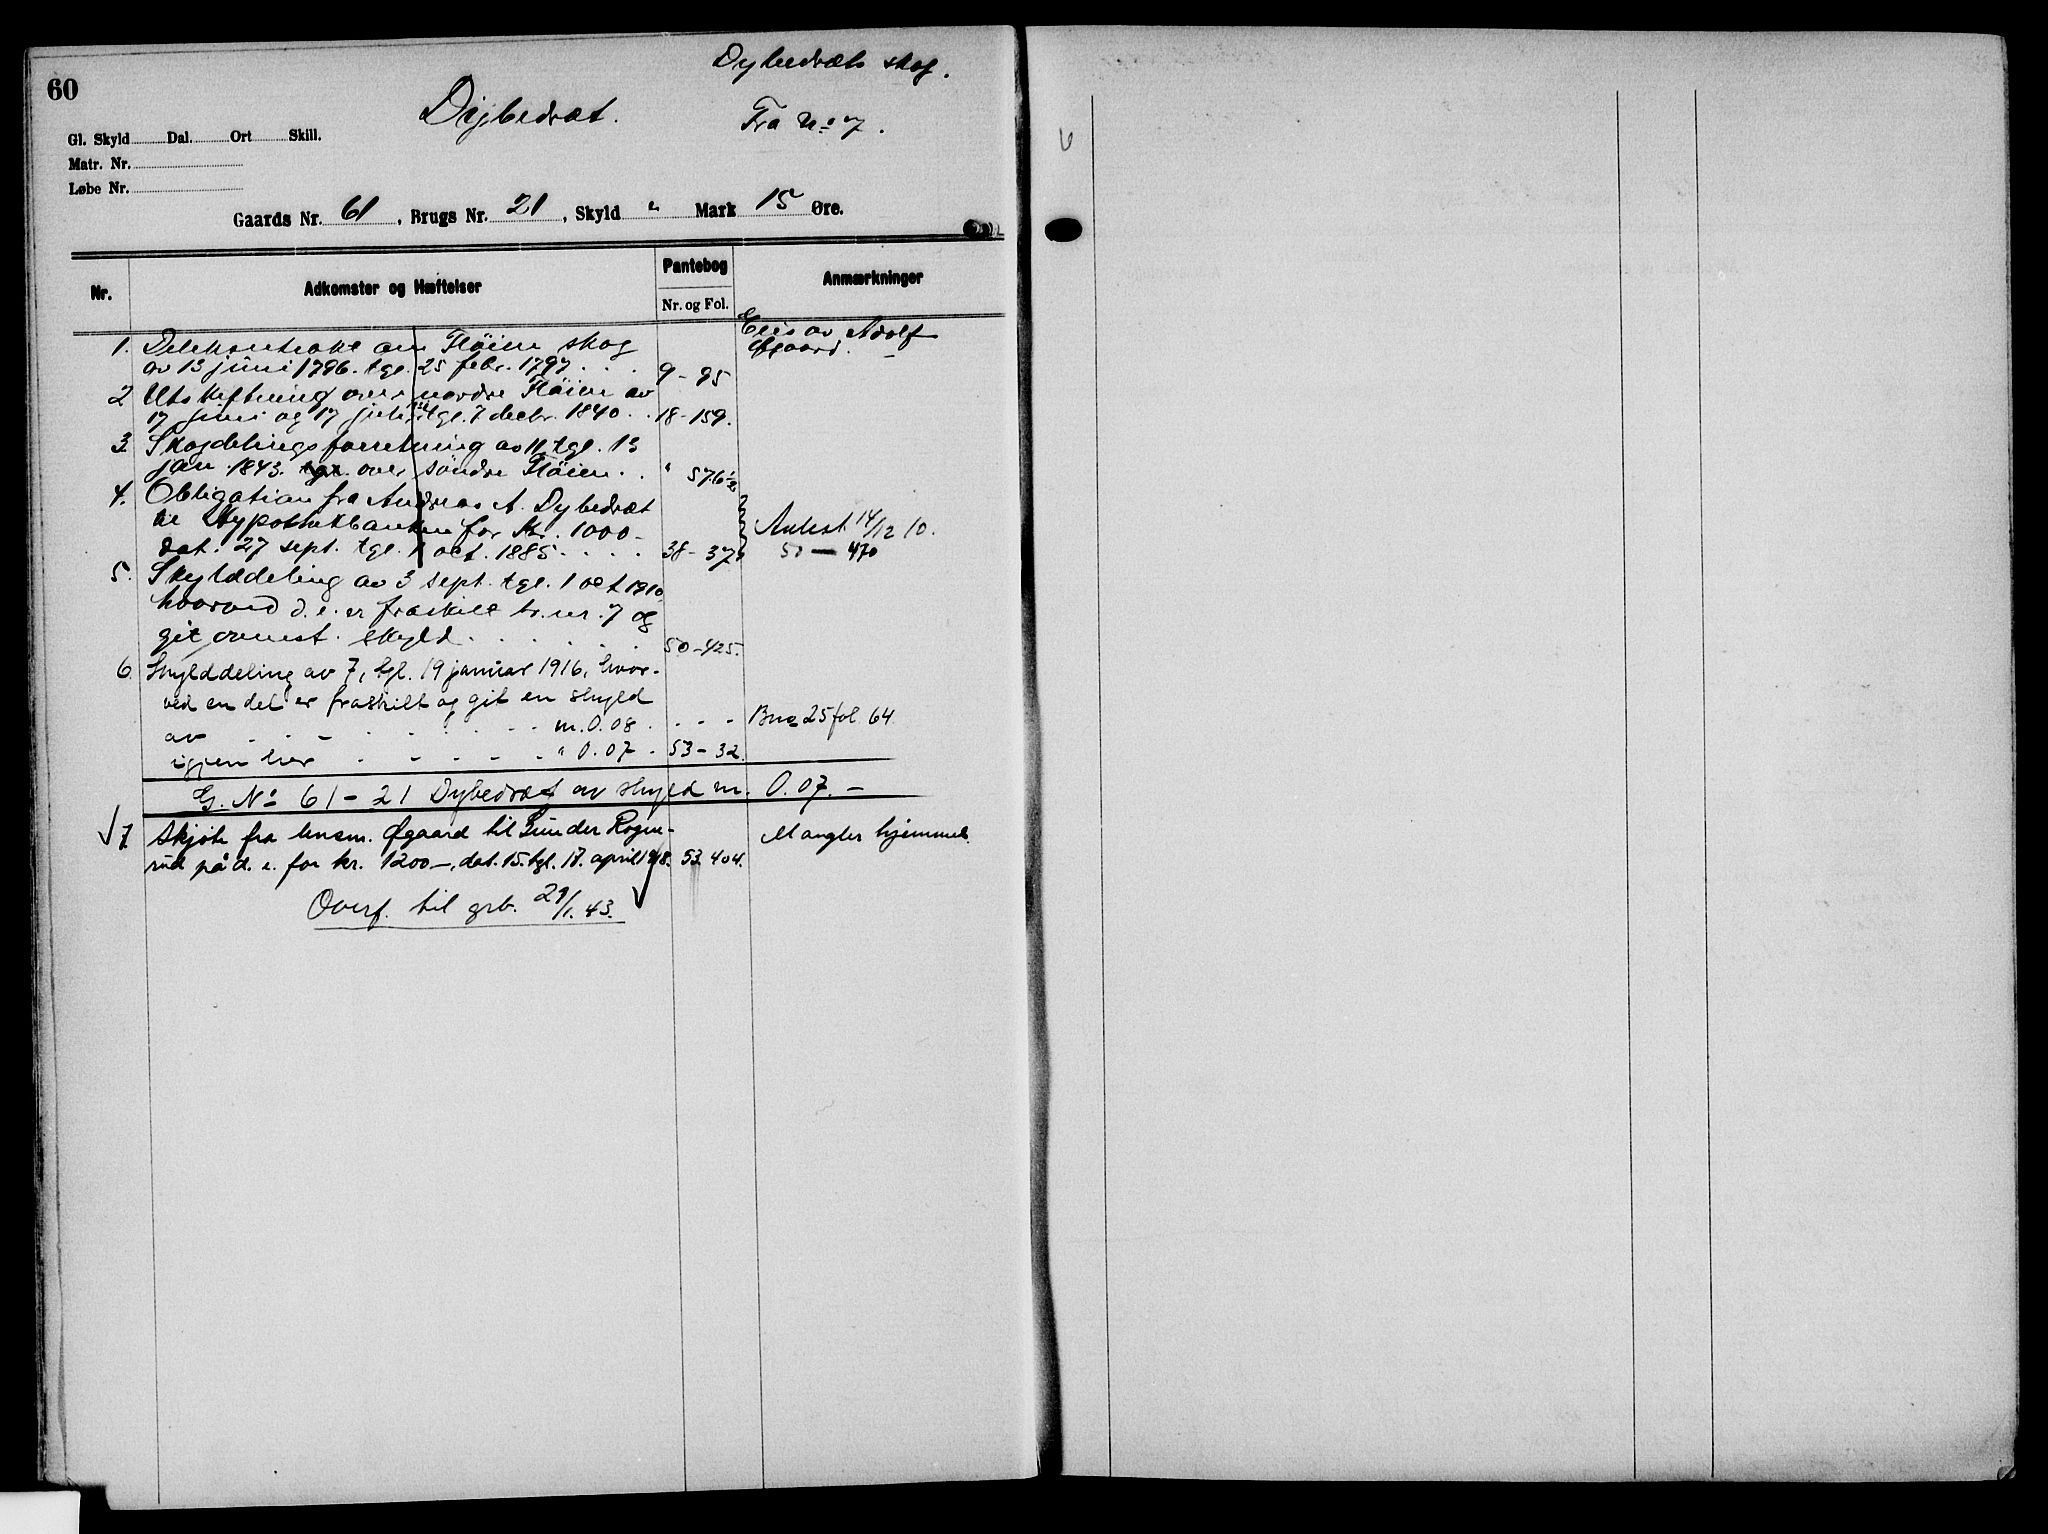 60
Dybedræts skog.
Dybedræt.
Fra No 7.
Gl. Skyld Dal. Ort Skill.
Matr. Nr.
Løbe Nr.
Gaards Nr. 61, Brugs Nr. 21, Skyld " Mark 15 Øre.
Nr. Adkomster og Hæftelser Pantebog Nr. og Fol. Anmærkninger
Eies av Adolf
Øgaard.
1. Delekontrakt om Fløien skog
av 13 juni 1796. tgl. 25 febr. 1797 . . . 9-95
2 Utskiftning over nordre Fløien av
17 juni og 17 juli tgl. 7 decbr. 1840 . . 18-159.
3. Skogdelingsforretning av 11 tgl. 13
jan. 1843. over søndre Fløien . . " 576
4. Obligation fra Andreas A. Dybedræt
til Hypothekbanken for Kr. 1000- Avlest 14/12 10.
dat. 27 sept. tgl. 1 oct. 1885 . . . . 38-37 50-470
5. Skylddeling av 3 sept. tgl. 1 oct 1910,
hvorved d. e. er fraskilt br. nr. 7 og
git ovennst. skyld . . . . . 50-425.
6. Skylddeling av 7, tgl. 19 januar 1916, hvor-
ved en del er fraskilt og git en skyld
av - - - - - - - m. 0.08 . - - - Bno 25 fol. 64
igjen her - - - - - " 0.07 - 53-32.
G. No 61-21 Dybedræt av skyld m. 0.07.-
7 Skjøte fra lensm. Øgaard til Gunder Rogne- Mangler hjemmel.
rud på d. e. for kr. 1200-, dat. 15. tgl. 17. april 1918. 53 404.
Overf. til grb. 29/1. 43.